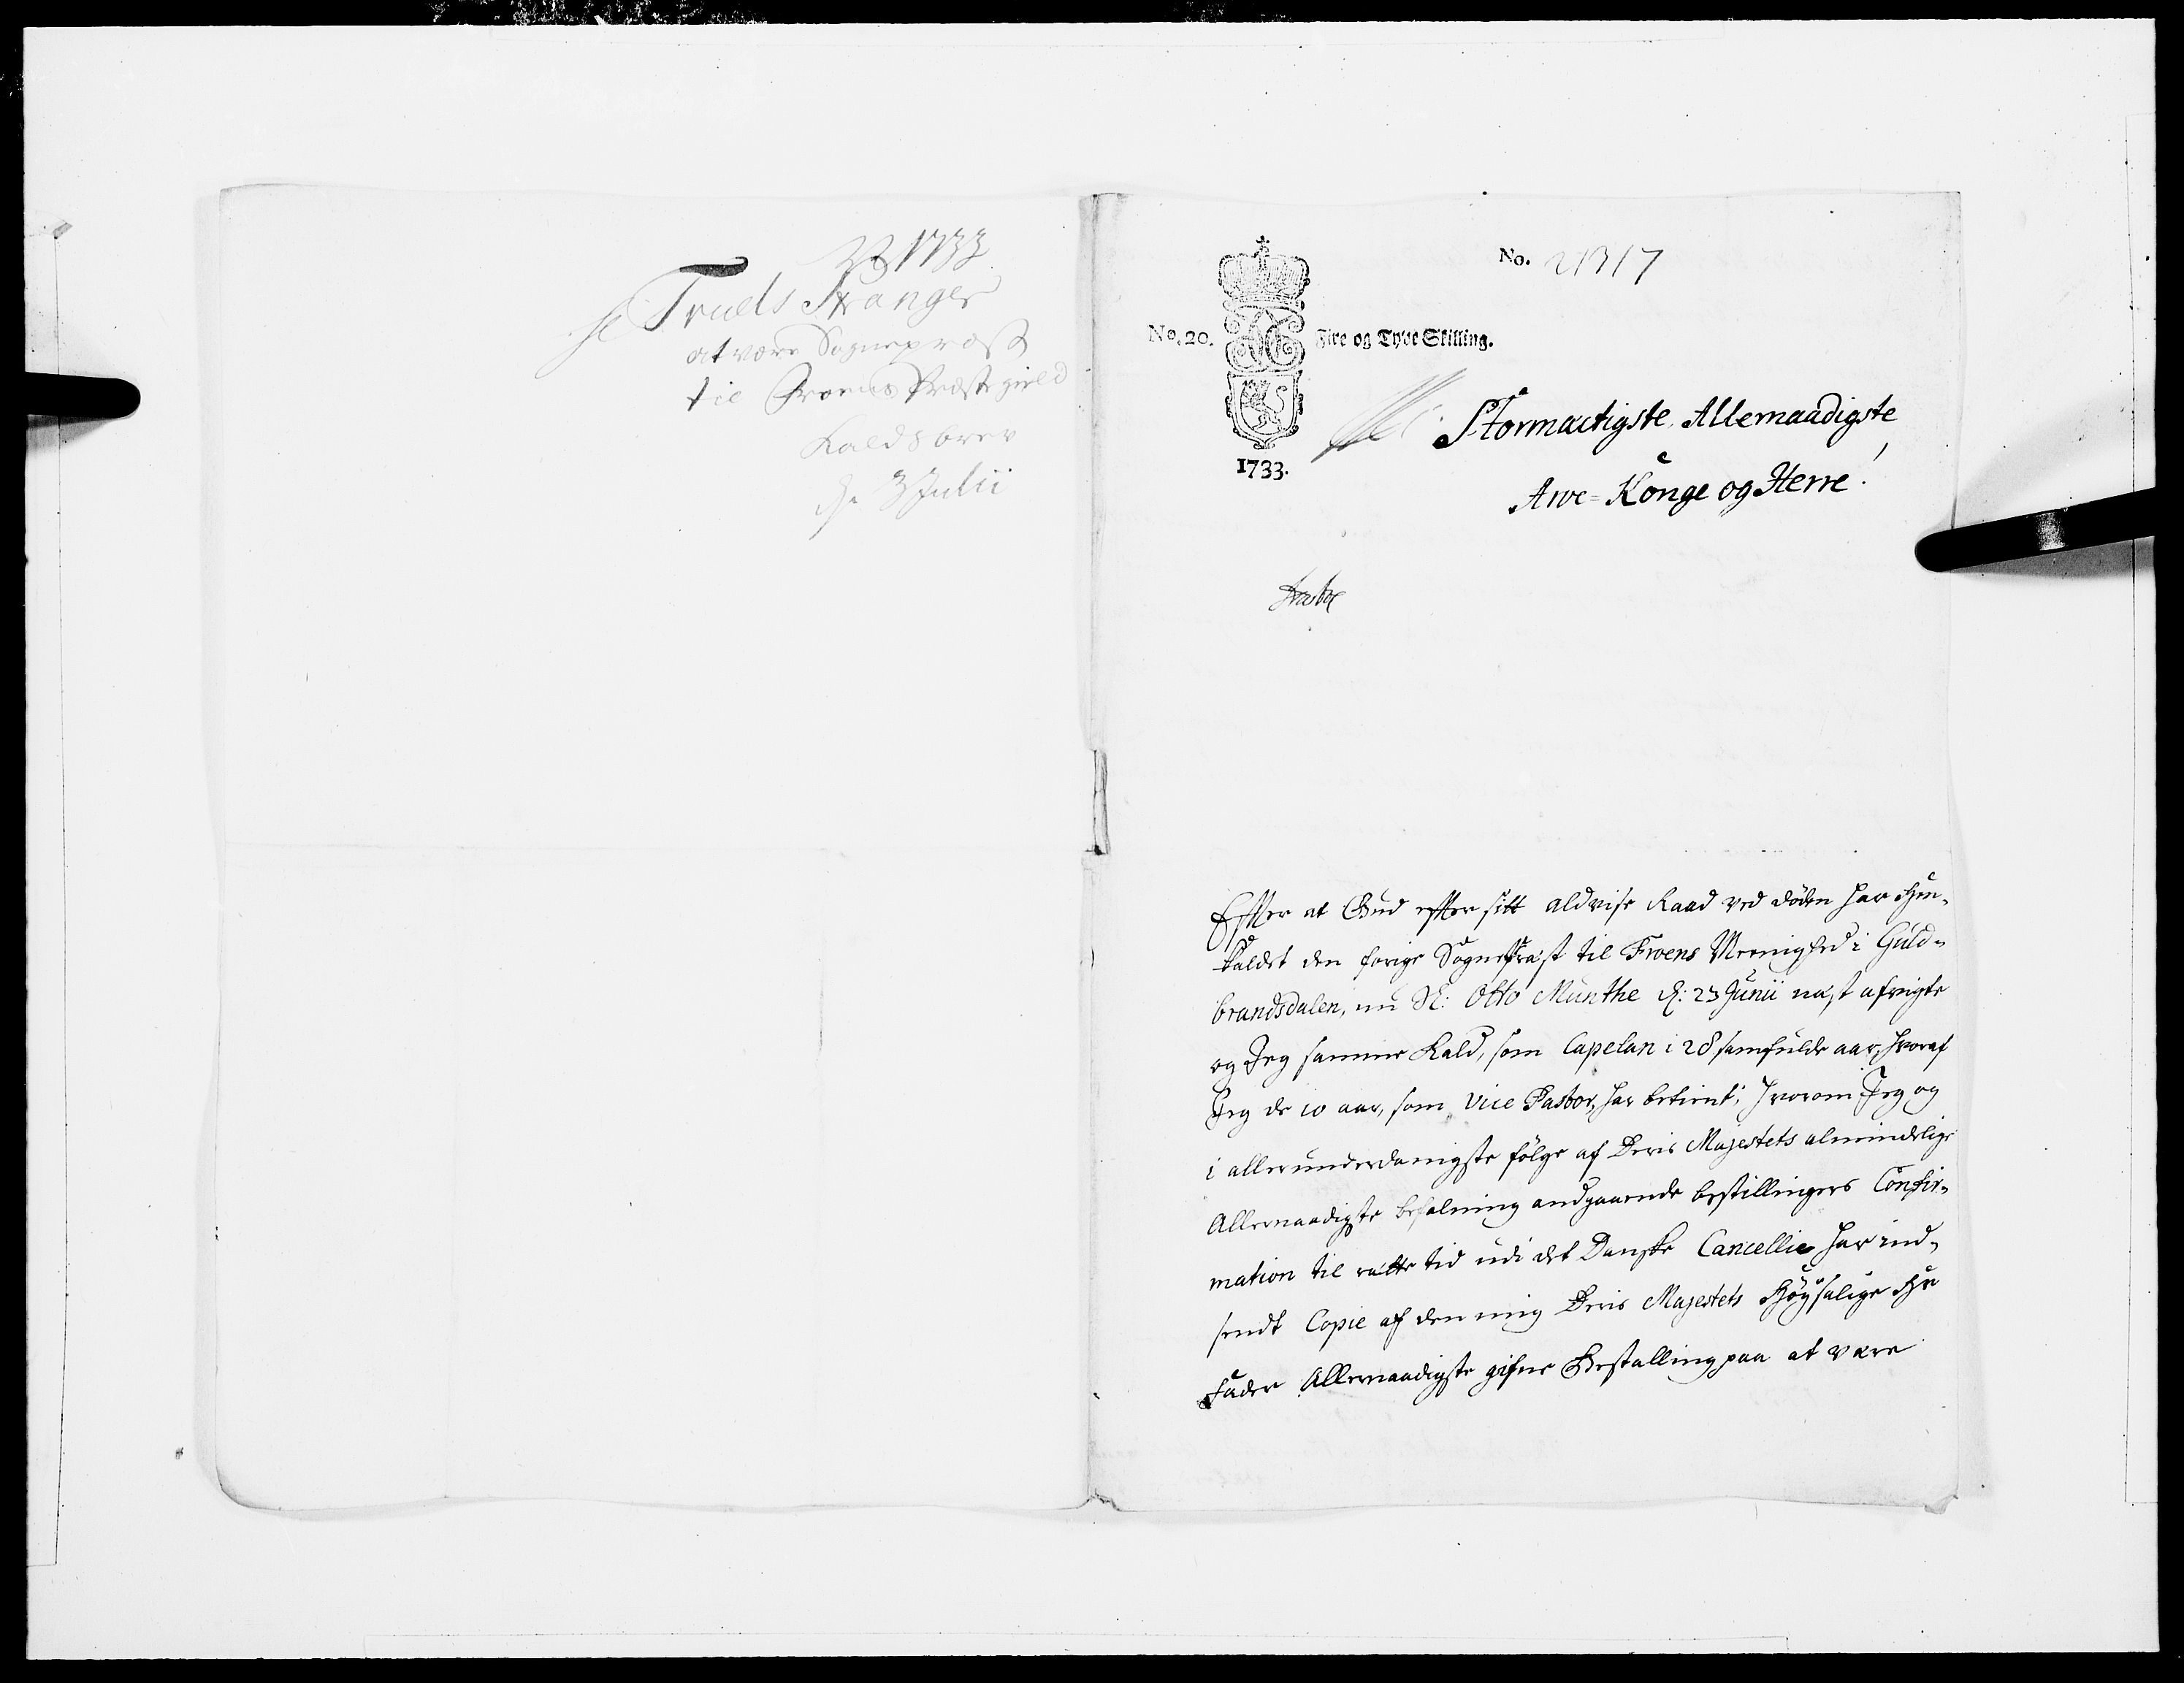 1733
Truels Stranger
at være Sognepræst
til Froens Præstegield
Kaldsbrev
d. 3 Julii
No. 21317
No. 20.
Fire og Tyve Skilling.
1733.
Stormæctigste, Allernaadigste
Arve-Konge og Herre!
Effter at Gud effter sitt aldvise Raad ved døden har hen-
kaldet den forige Sognepræst til Froens Meenighed i Guld-
brandsdalen, nu Sl: Otto Munthe d: 23 Junii næst afvigte
og Jeg samme Kald, som Capelan i 28 samfulde aar, hvoraf
Jeg de 10 aar, som Vice Pastor, har betient; hvorom Jeg og
i allerunderdanigste følge af Deris Majestets almindelige
Allernaadigste befalning andgaaende bestillingers Confir-
mation til rætte tid udi det Danske Cancellie har ind-
sendt Copie af den mig Deris Majestets Høysalige Hr
Fader Allernaadigste gifne Bestalling paa at være